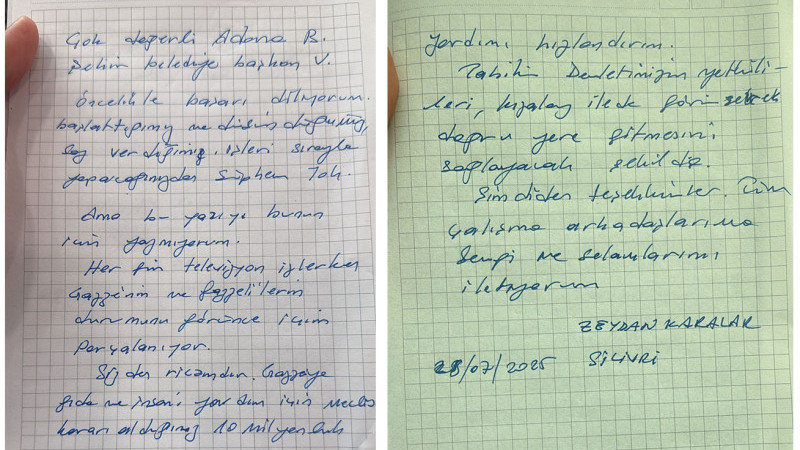 Çok değerli Adana B.
Şehir belediye başkan V.
Öncelikle başarı diliyorum.
başlattığımız ve düşündüğümüz,
söz verdiğimiz işleri sırayla
yapacağınızdan şüphem yok.
Ama bu yazıyı bunun
için yazmıyorum.
Her gün televizyon izlerken
Gazze'nin ve gazzelilerin
durumunu görünce içim
parçalanıyor.
Sizden ricamdır. Gazzeye
gıda ve insani yardım için meclis
kararı aldığımız 10 milyonluk
yardımı hızlandırın.
Tabiki Devletimizin yetkili-
leri, kızılay ile görüşerek
doğru yere gitmesini
sağlayacak şekilde.
Şimdiden teşekkürler. Tüm
çalışma arkadaşlarıma
sevgi ve selamlarımı
iletiyorum
ZEYDAN KARALAR
28/07/2025 SİLİVRİ